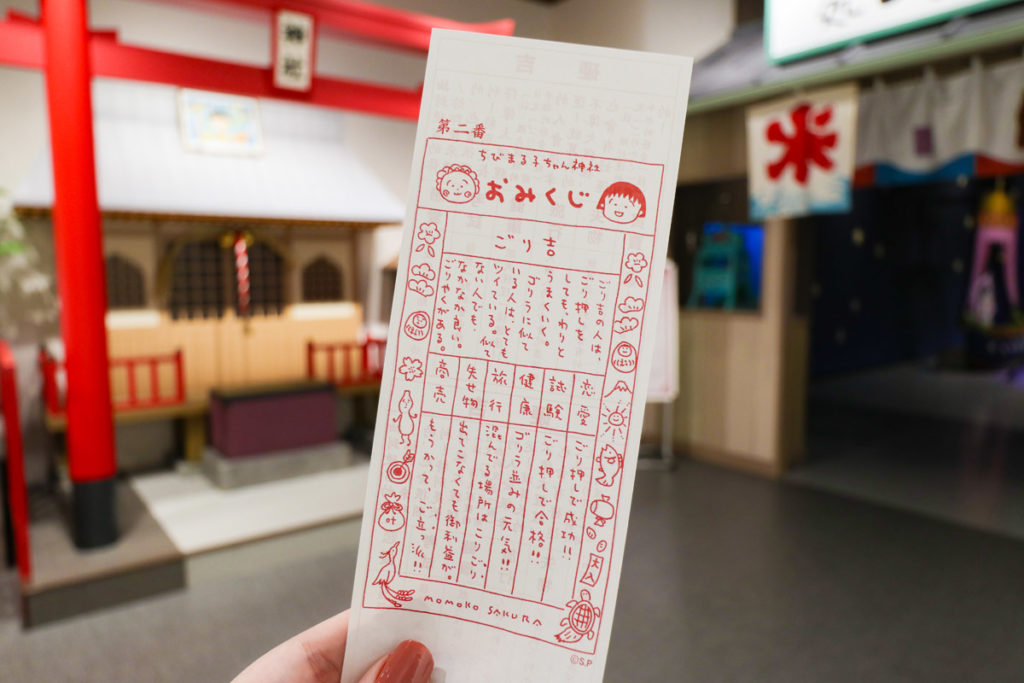 第二番
ちびまる子ちゃん神社
おみくじ
ごり吉
ごり吉の人は、
ごり押しを
しても、わりと
うまくいく。
ゴリラに似て
いる人は、とても
ツイている。似て
ない人でも、
なかなか良い。
ごりやくがある。
恋愛
ごり押しで成功!!
試験
ごり押しで合格!!
健康
ゴリラ並みの元気!!
旅行
混んでる場所はこりごり
失せ物
出てこなくても御利益が。
商売
もうかって、ご立っ派!!
はい
はい
叶
大入
MOMOKO SAKURA
©S.P
氷